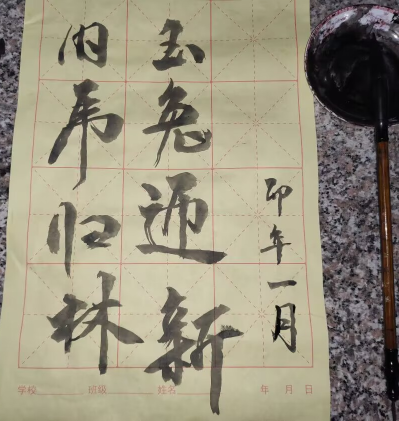 虎归林
玉兔迎新
卯年一月
学校 班级 姓名 年 月 日